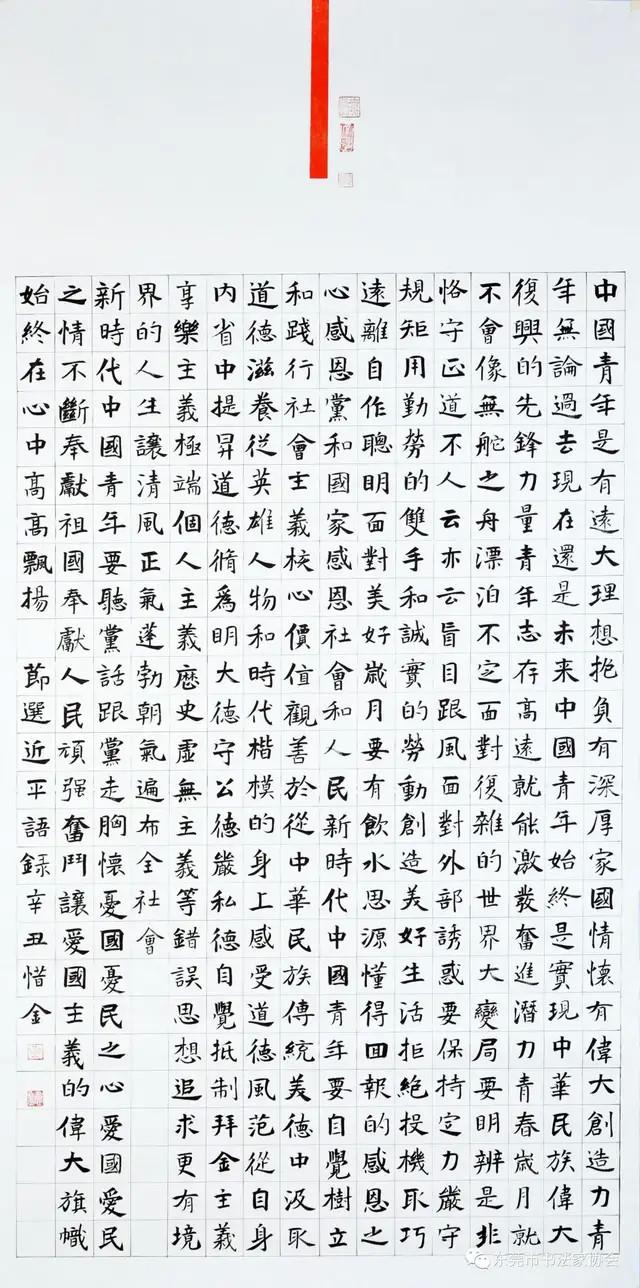 中國青年是有遠大理想抱負有深厚家國情懷有偉大創造力青
年無論過去現在還是未来中國青年始終是實現中華民族偉大
復興的先鋒力量青年志存高遠就能激發奮進潛力青春歲月就
不會像無舵之舟漂泊不定面對復雜的世界大變局要明辨是非
恪守正道不人云亦云盲目跟風面對外部誘惑要保持定力嚴守
規矩用勤勞的雙手和誠實的勞動創造美好生活拒絕投機取巧
遠離自作聰明面對美好歲月要有飲水思源懂得回報的感恩之
心感恩黨和國家感恩社會和人民新時代中國青年要自覺樹立
和踐行社會主義核心價值觀善於從中華民族傳統美德中汲取
道德滋養從英雄人物和時代楷模的身上感受道德風范從自身
内省中提昇道德脩爲明大德守公德嚴私德自覺抵制拜金主義
享樂主義極端個人主義歷史虛無主義等錯誤思想追求更有境
界的人生讓清風正氣蓬勃朝氣遍布全社會
新時代中國青年要聽黨話跟黨走胸懷憂國憂民之心愛國愛民
之情不斷奉獻祖國奉獻人民頑强奮鬥讓愛國主義的偉大旗幟
始終在心中高高飄揚 節選近平語録辛丑惜金
东莞市书法家协会